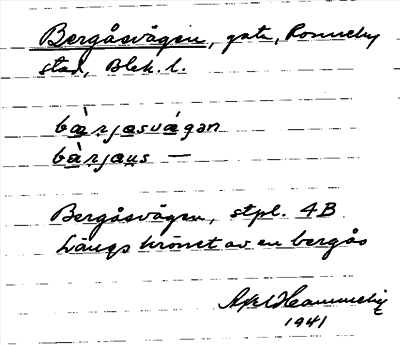 Bergåsvägen, gata, Ronneby
stad, Blek. l.
bærjasvægən
bærjaus —
Bergåsvägen, stpl. 4B
Längs krönet av en bergås
1941